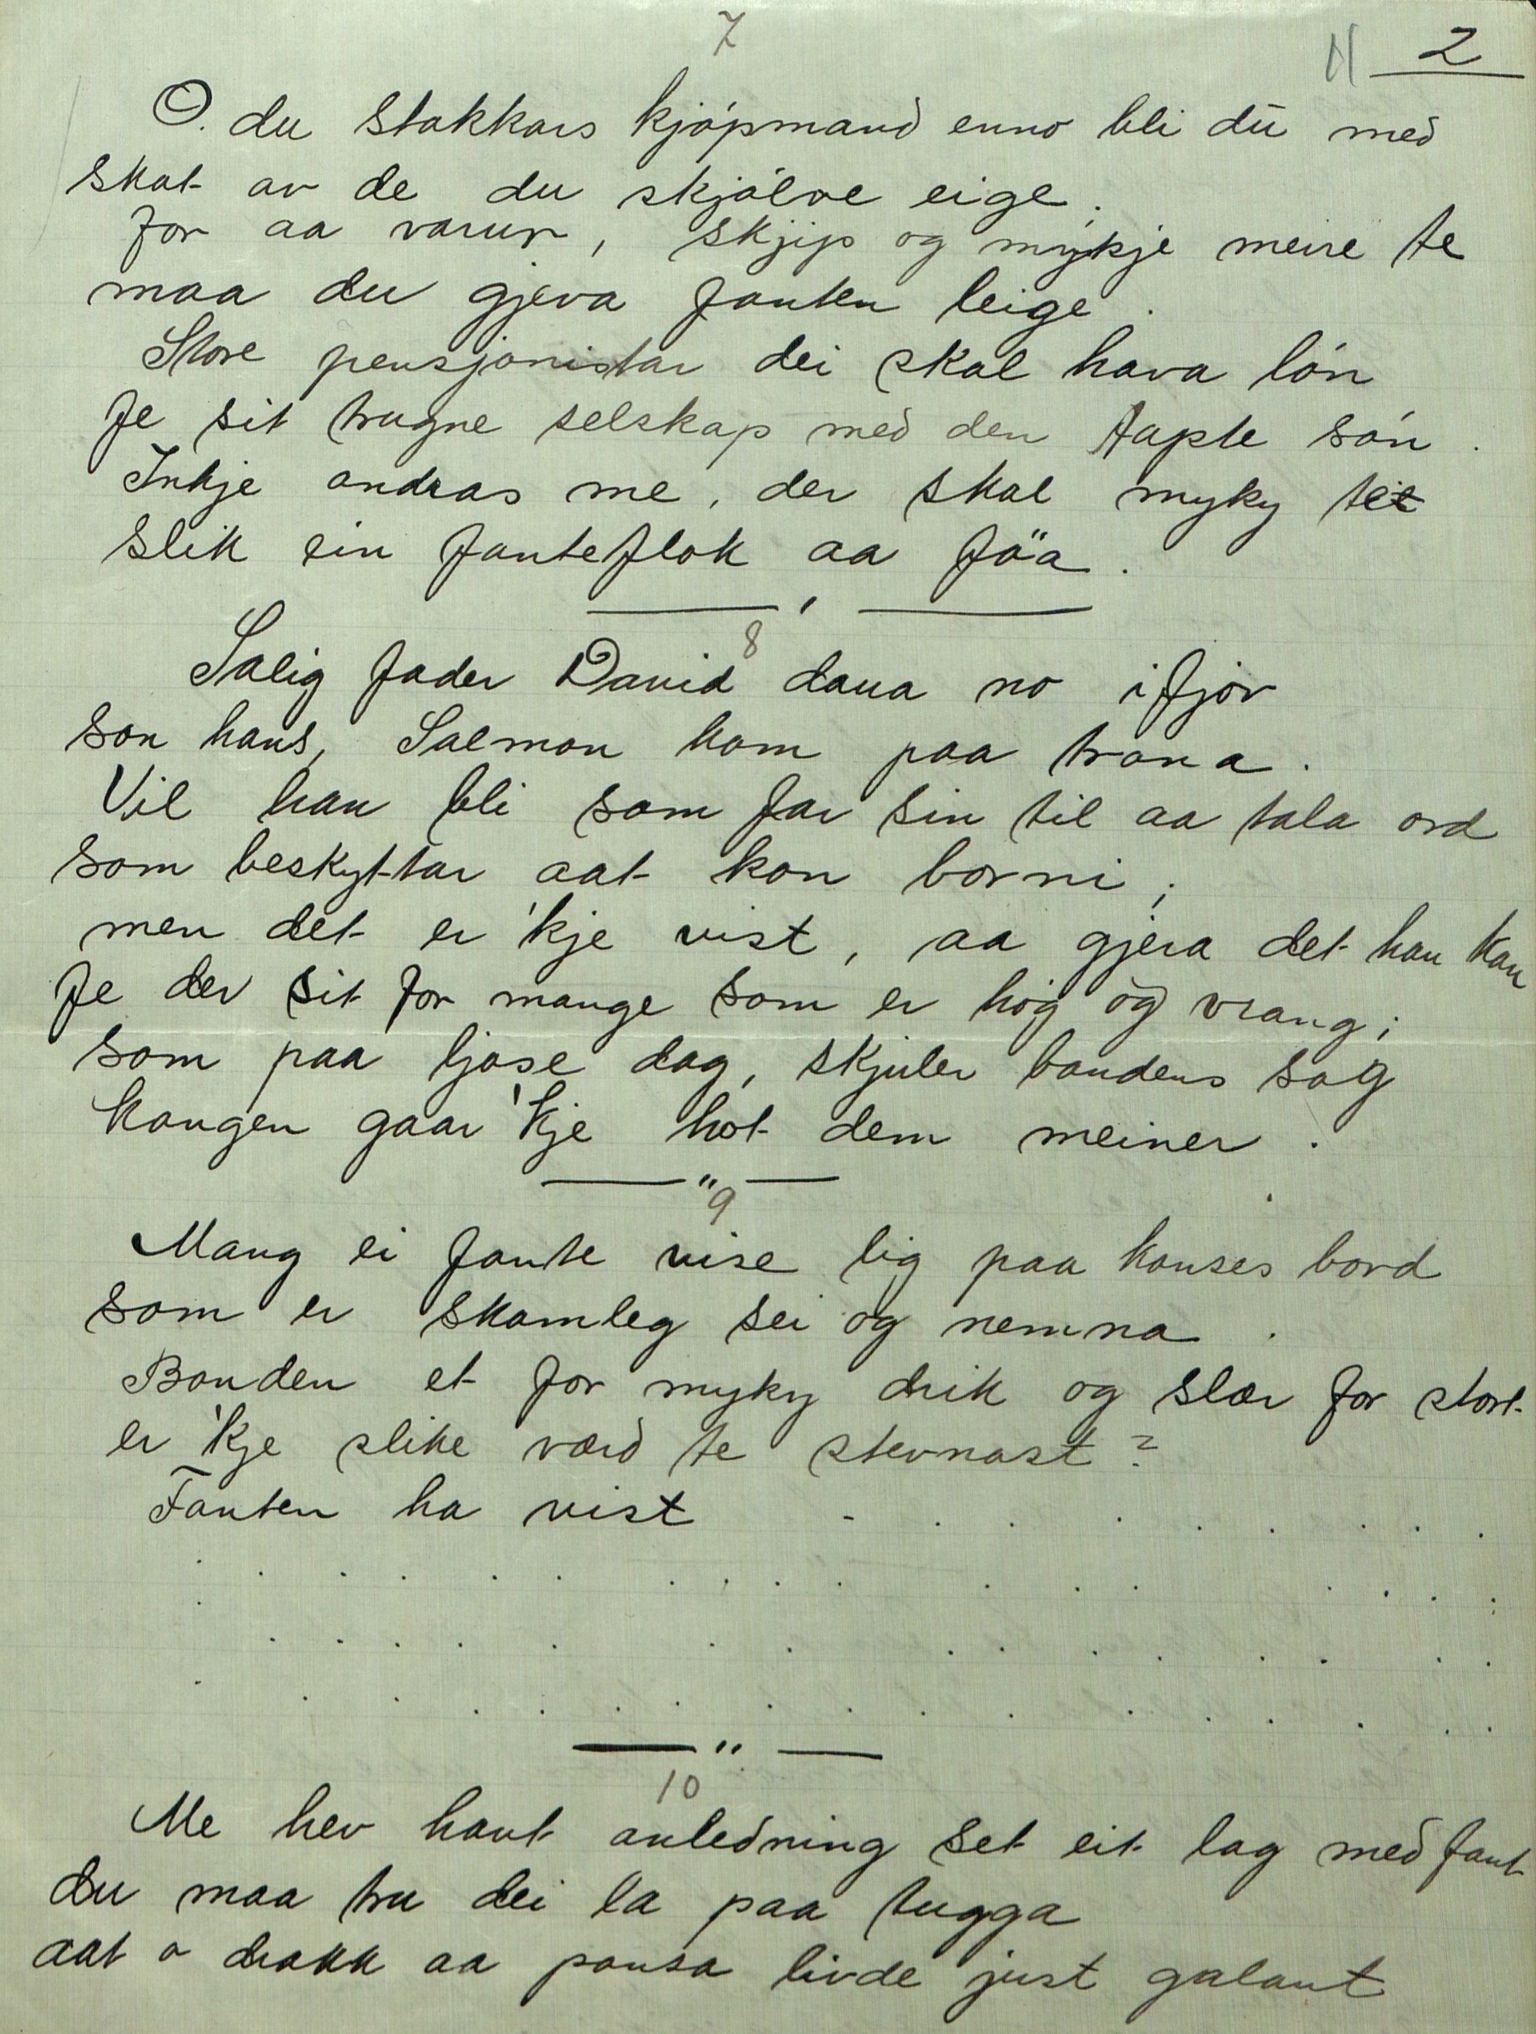 7
2
O. du stakkars kjøpmand enno bli du med
skat av de du skjølve eige.
for aa varur, skjip og mykje meire te
maa du gjeva fanten leige.
Store pensjonistar dei skal hava løn
fe sit trugne selskap med den tapte søn.
Inkje andras me, der skal myky tet
slik ein fanteflok aa föa.
8
Salig fader David daua no ifjor
son hans, Salmon kom paa trona.
Vil han bli som far sin til aa tala ord
som beskyttar aat kon borni;
men det er 'kje vist, aa gjera det han kan
fe der sit for mange som er høg og vrang;
som paa ljose dag, skjuler bondens sag
kongen gaar 'kje hot dem meiner.
9
Mang ei fante vise lig paa kanses bord
som er skamleg sei og nemna.
Bonden et for myky drik og slær for stort
er 'kje slike værd te stevnast?
Fanten ha vist - . . . . . . . .
10
Me hev havt anledning set eit lag med fant
du maa tru dei la paa tugga
aat o drakk aa pansa livde just galant